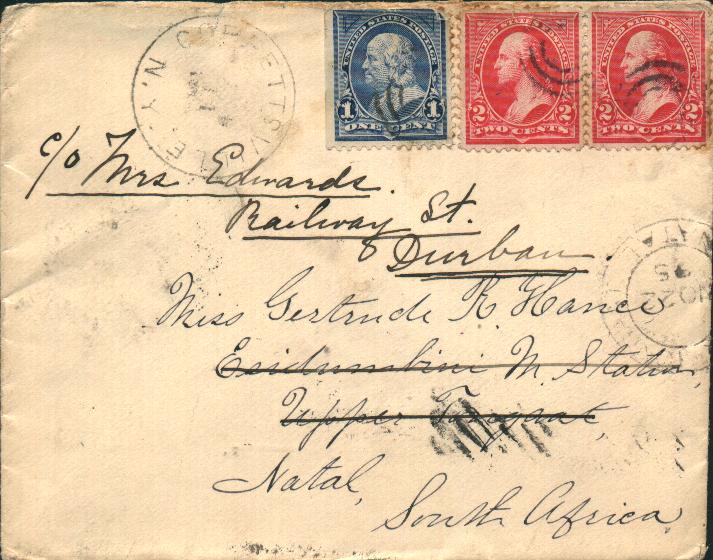 UNITED STATES POSTAGE
1 1
ONE CENT
UNITED STATES POSTAGE
2 2
TWO CENTS
UNITED STATES POSTAGE
2 2
TWO CENTS
CORBETTSVILLE N.Y.
c/o Mrs Edwards.
Railway St.
Durban.
Miss Gertrude R. Hance
Esidumbini M. Station,
Upper
Natal,
South Africa
NATAL
95